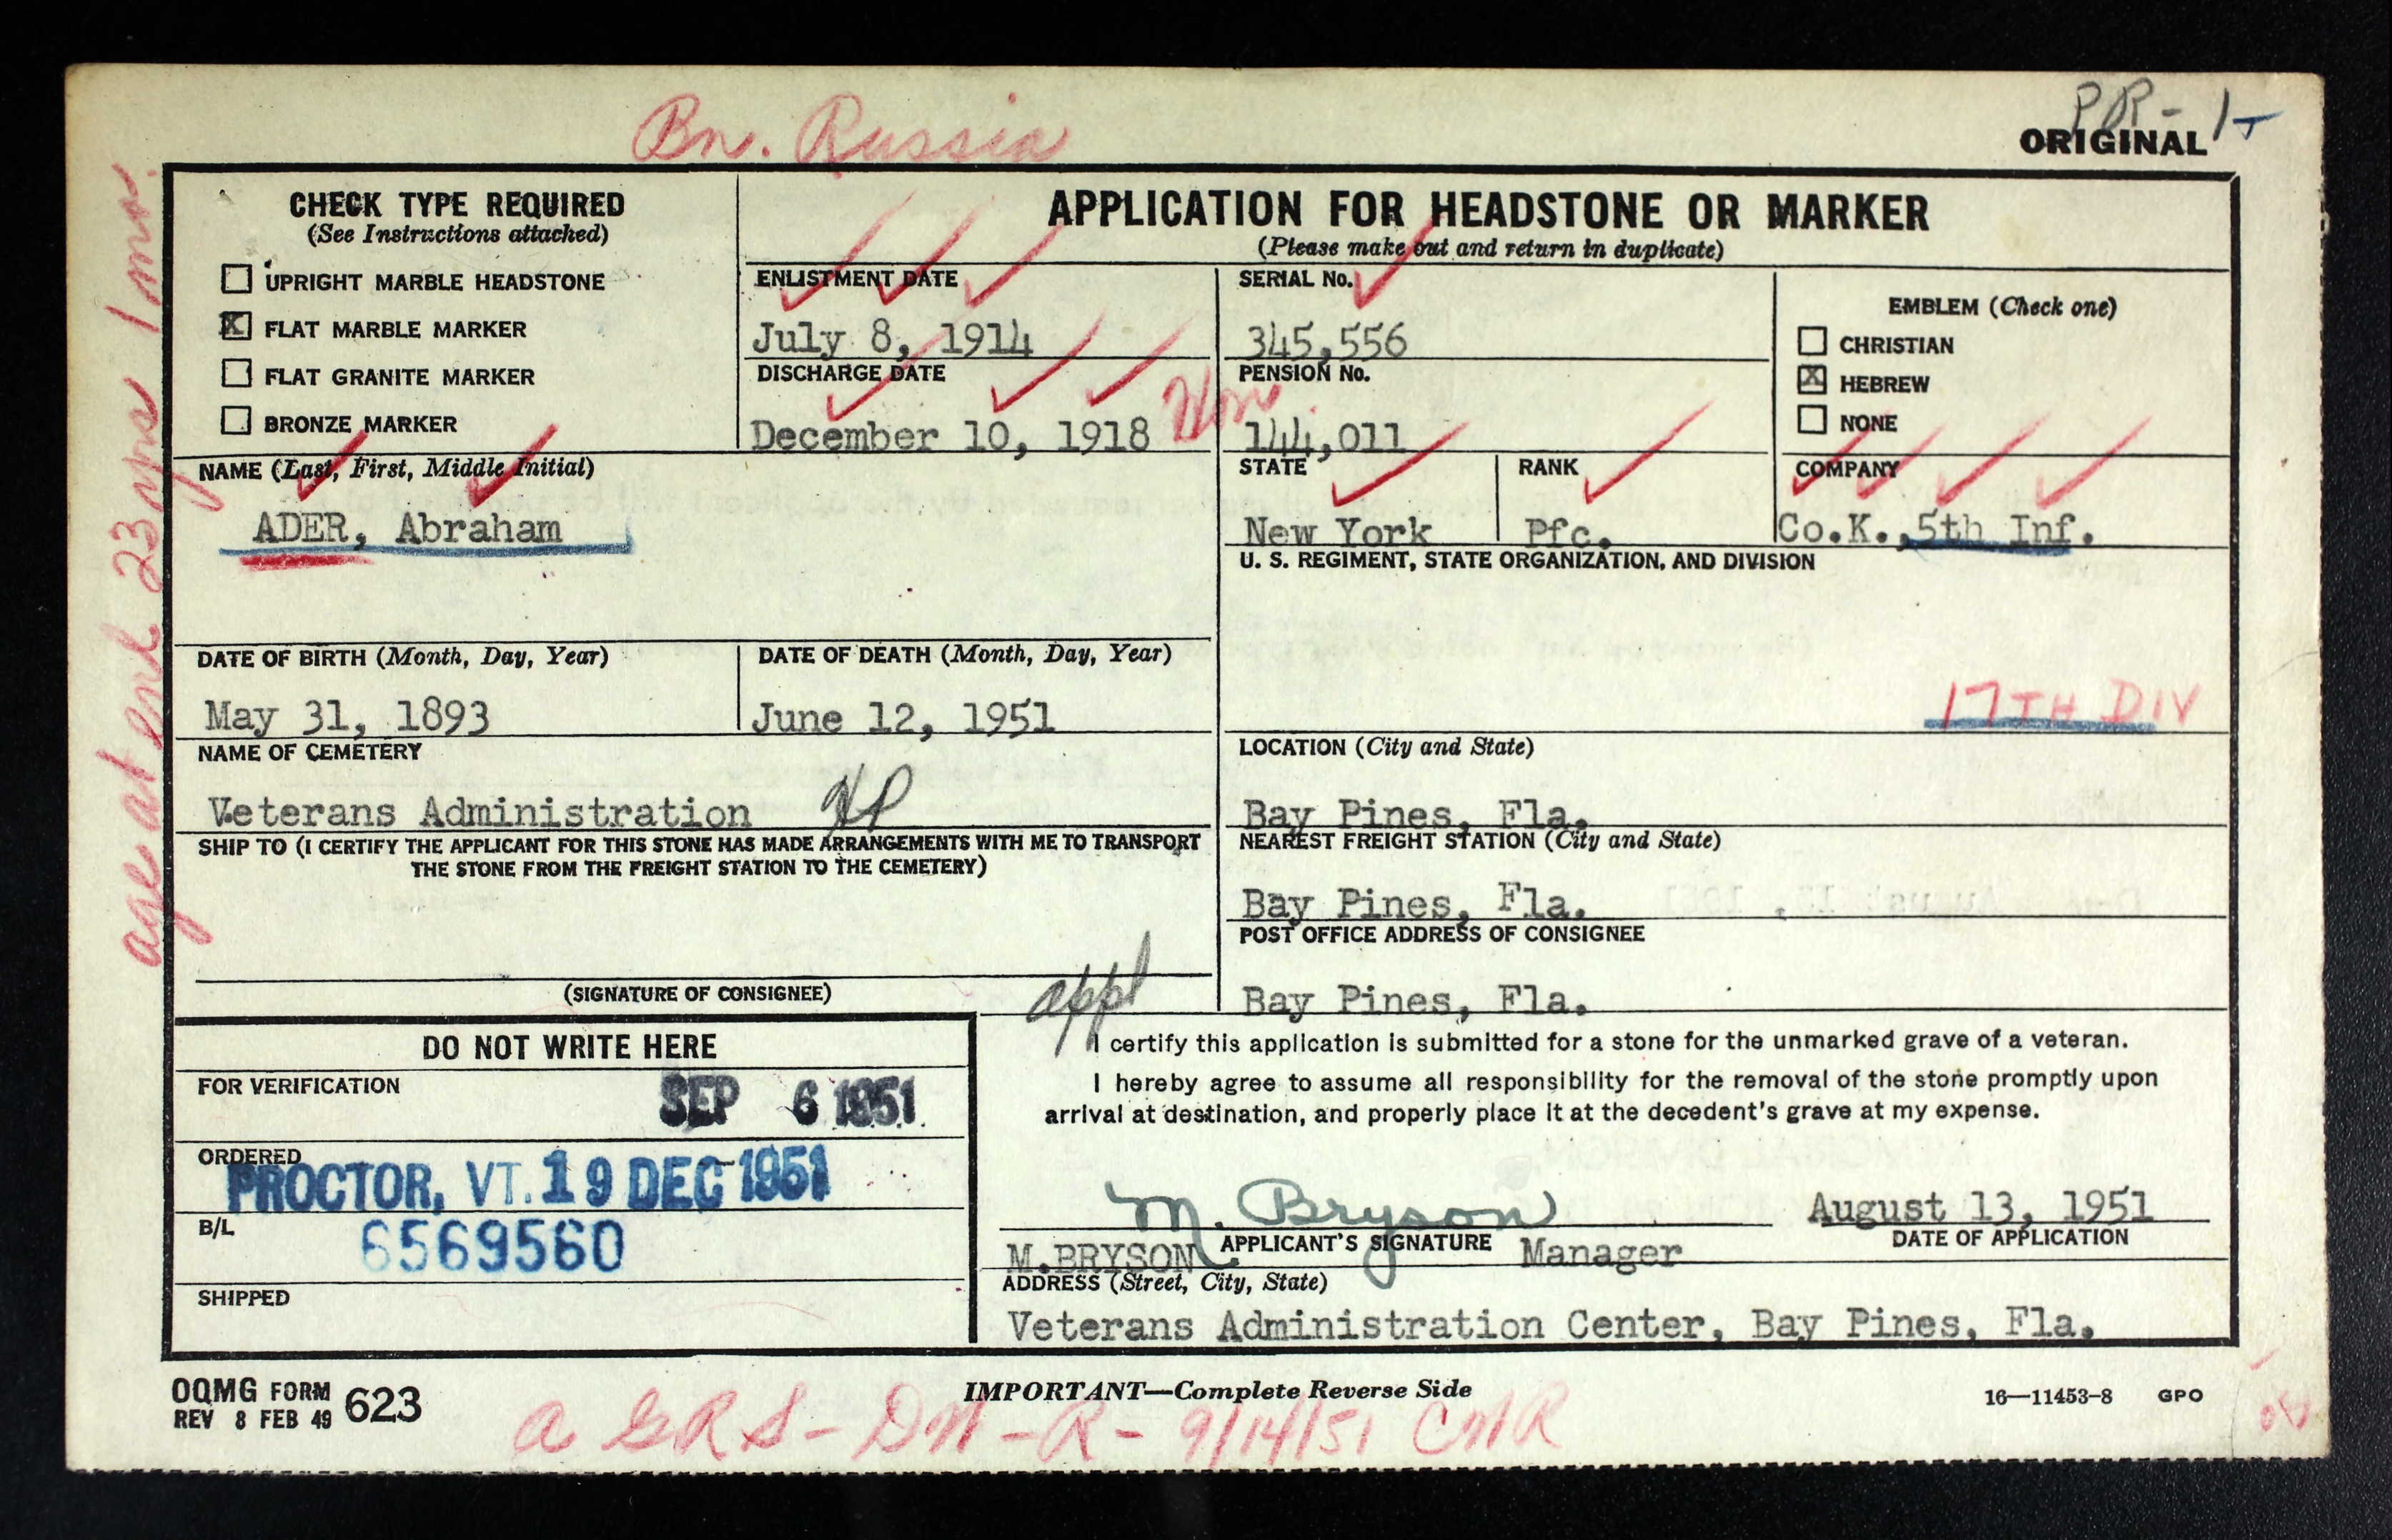 Bn. Russia
PR-1
ORIGINAL
CHECK TYPE REQUIRED
(See Instructions attached)
☐ UPRIGHT MARBLE HEADSTONE
☒ FLAT MARBLE MARKER
☐ FLAT GRANITE MARKER
☐ BRONZE MARKER
APPLICATION FOR HEADSTONE OR MARKER
(Please make out and return in duplicate)
ENLISTMENT DATE
July 8, 1914
DISCHARGE DATE
December 10, 1918 Hon
SERIAL No.
345,556
PENSION No.
144,011
EMBLEM (Check one)
☐ CHRISTIAN
☒ HEBREW
☐ NONE
NAME (Last, First, Middle Initial)
ADER, Abraham
STATE
New York
RANK
Pfc.
COMPANY
Co.K.,5th Inf.
U. S. REGIMENT, STATE ORGANIZATION, AND DIVISION
17TH DIV
DATE OF BIRTH (Month, Day, Year)
May 31, 1893
DATE OF DEATH (Month, Day, Year)
June 12, 1951
NAME OF CEMETERY
Veterans Administration
LOCATION (City and State)
Bay Pines, Fla.
SHIP TO (I CERTIFY THE APPLICANT FOR THIS STONE HAS MADE ARRANGEMENTS WITH ME TO TRANSPORT
THE STONE FROM THE FREIGHT STATION TO THE CEMETERY)
(SIGNATURE OF CONSIGNEE)
NEAREST FREIGHT STATION (City and State)
Bay Pines, Fla.
POST OFFICE ADDRESS OF CONSIGNEE
Bay Pines, Fla.
appl
DO NOT WRITE HERE
FOR VERIFICATION
SEP 6 1951
ORDERED
PROCTOR, VT. 19 DEC 1951
B/L
6569560
SHIPPED
I certify this application is submitted for a stone for the unmarked grave of a veteran.
I hereby agree to assume all responsibility for the removal of the stone promptly upon
arrival at destination, and properly place it at the decedent's grave at my expense.
M. Bryson
August 13, 1951
APPLICANT'S SIGNATURE
DATE OF APPLICATION
M.BRYSON Manager
ADDRESS (Street, City, State)
Veterans Administration Center, Bay Pines, Fla.
OQMG FORM 623
REV 8 FEB 49
IMPORTANT—Complete Reverse Side
16—11453-8 GPO
A GRS-DN-R-9/14/51 CNR
age at enl 23 yrs 1 mo.